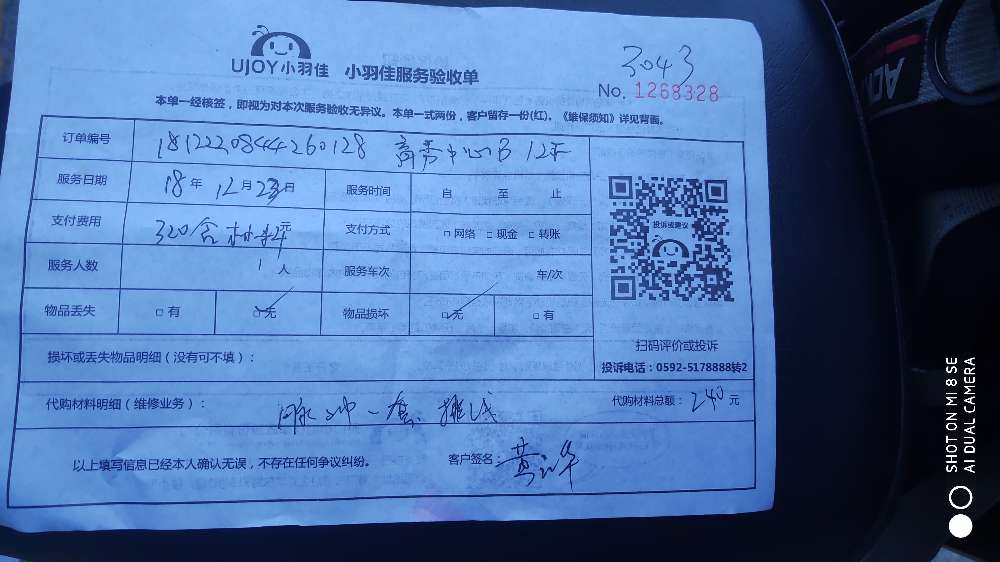 3043
UJOY小羽佳 小羽佳服务验收单
No. 1268328
本单一经核签，即视为对本次服务验收无异议。本单一式两份，客户留存一份(红)。《维保须知》详见背面。
订单编号 1812220844260128 商务中心B 12F
服务日期 18年 12月 23日 服务时间 自 至 止
支付费用 320含材料 元 支付方式 □ 网络 □ 现金 □ 转账
服务人数 1 人 服务车次 车/次
物品丢失 □ 有 □ 无 物品损坏 □ 无 □ 有
投诉或建议
扫码评价或投诉
损坏或丢失物品明细（没有可不填）：
投诉电话：0592-5178888转2
代购材料明细（维修业务）： 一套 代购材料总额： 240 元
以上填写信息已经本人确认无误，不存在任何争议纠纷。 客户签名： 黄
SHOT ON MI 8 SE
AI DUAL CAMERA